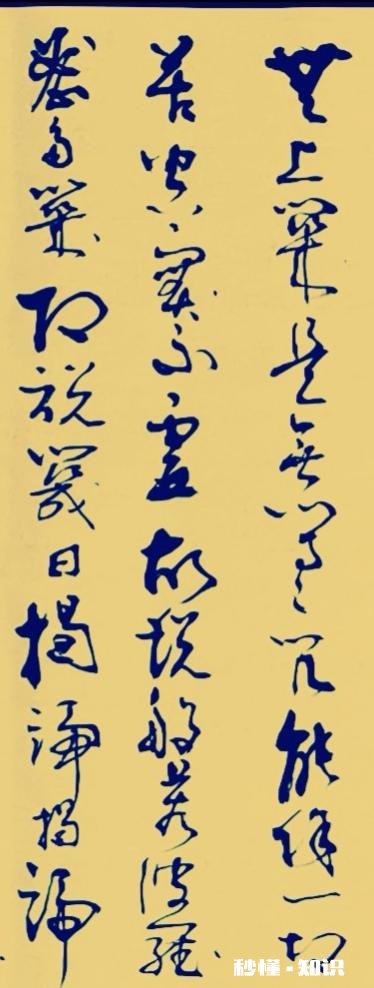 無上咒是無等等咒能除一切
苦真實不虛故說般若波羅
蜜多咒即說咒曰揭諦揭諦
秒懂·知识